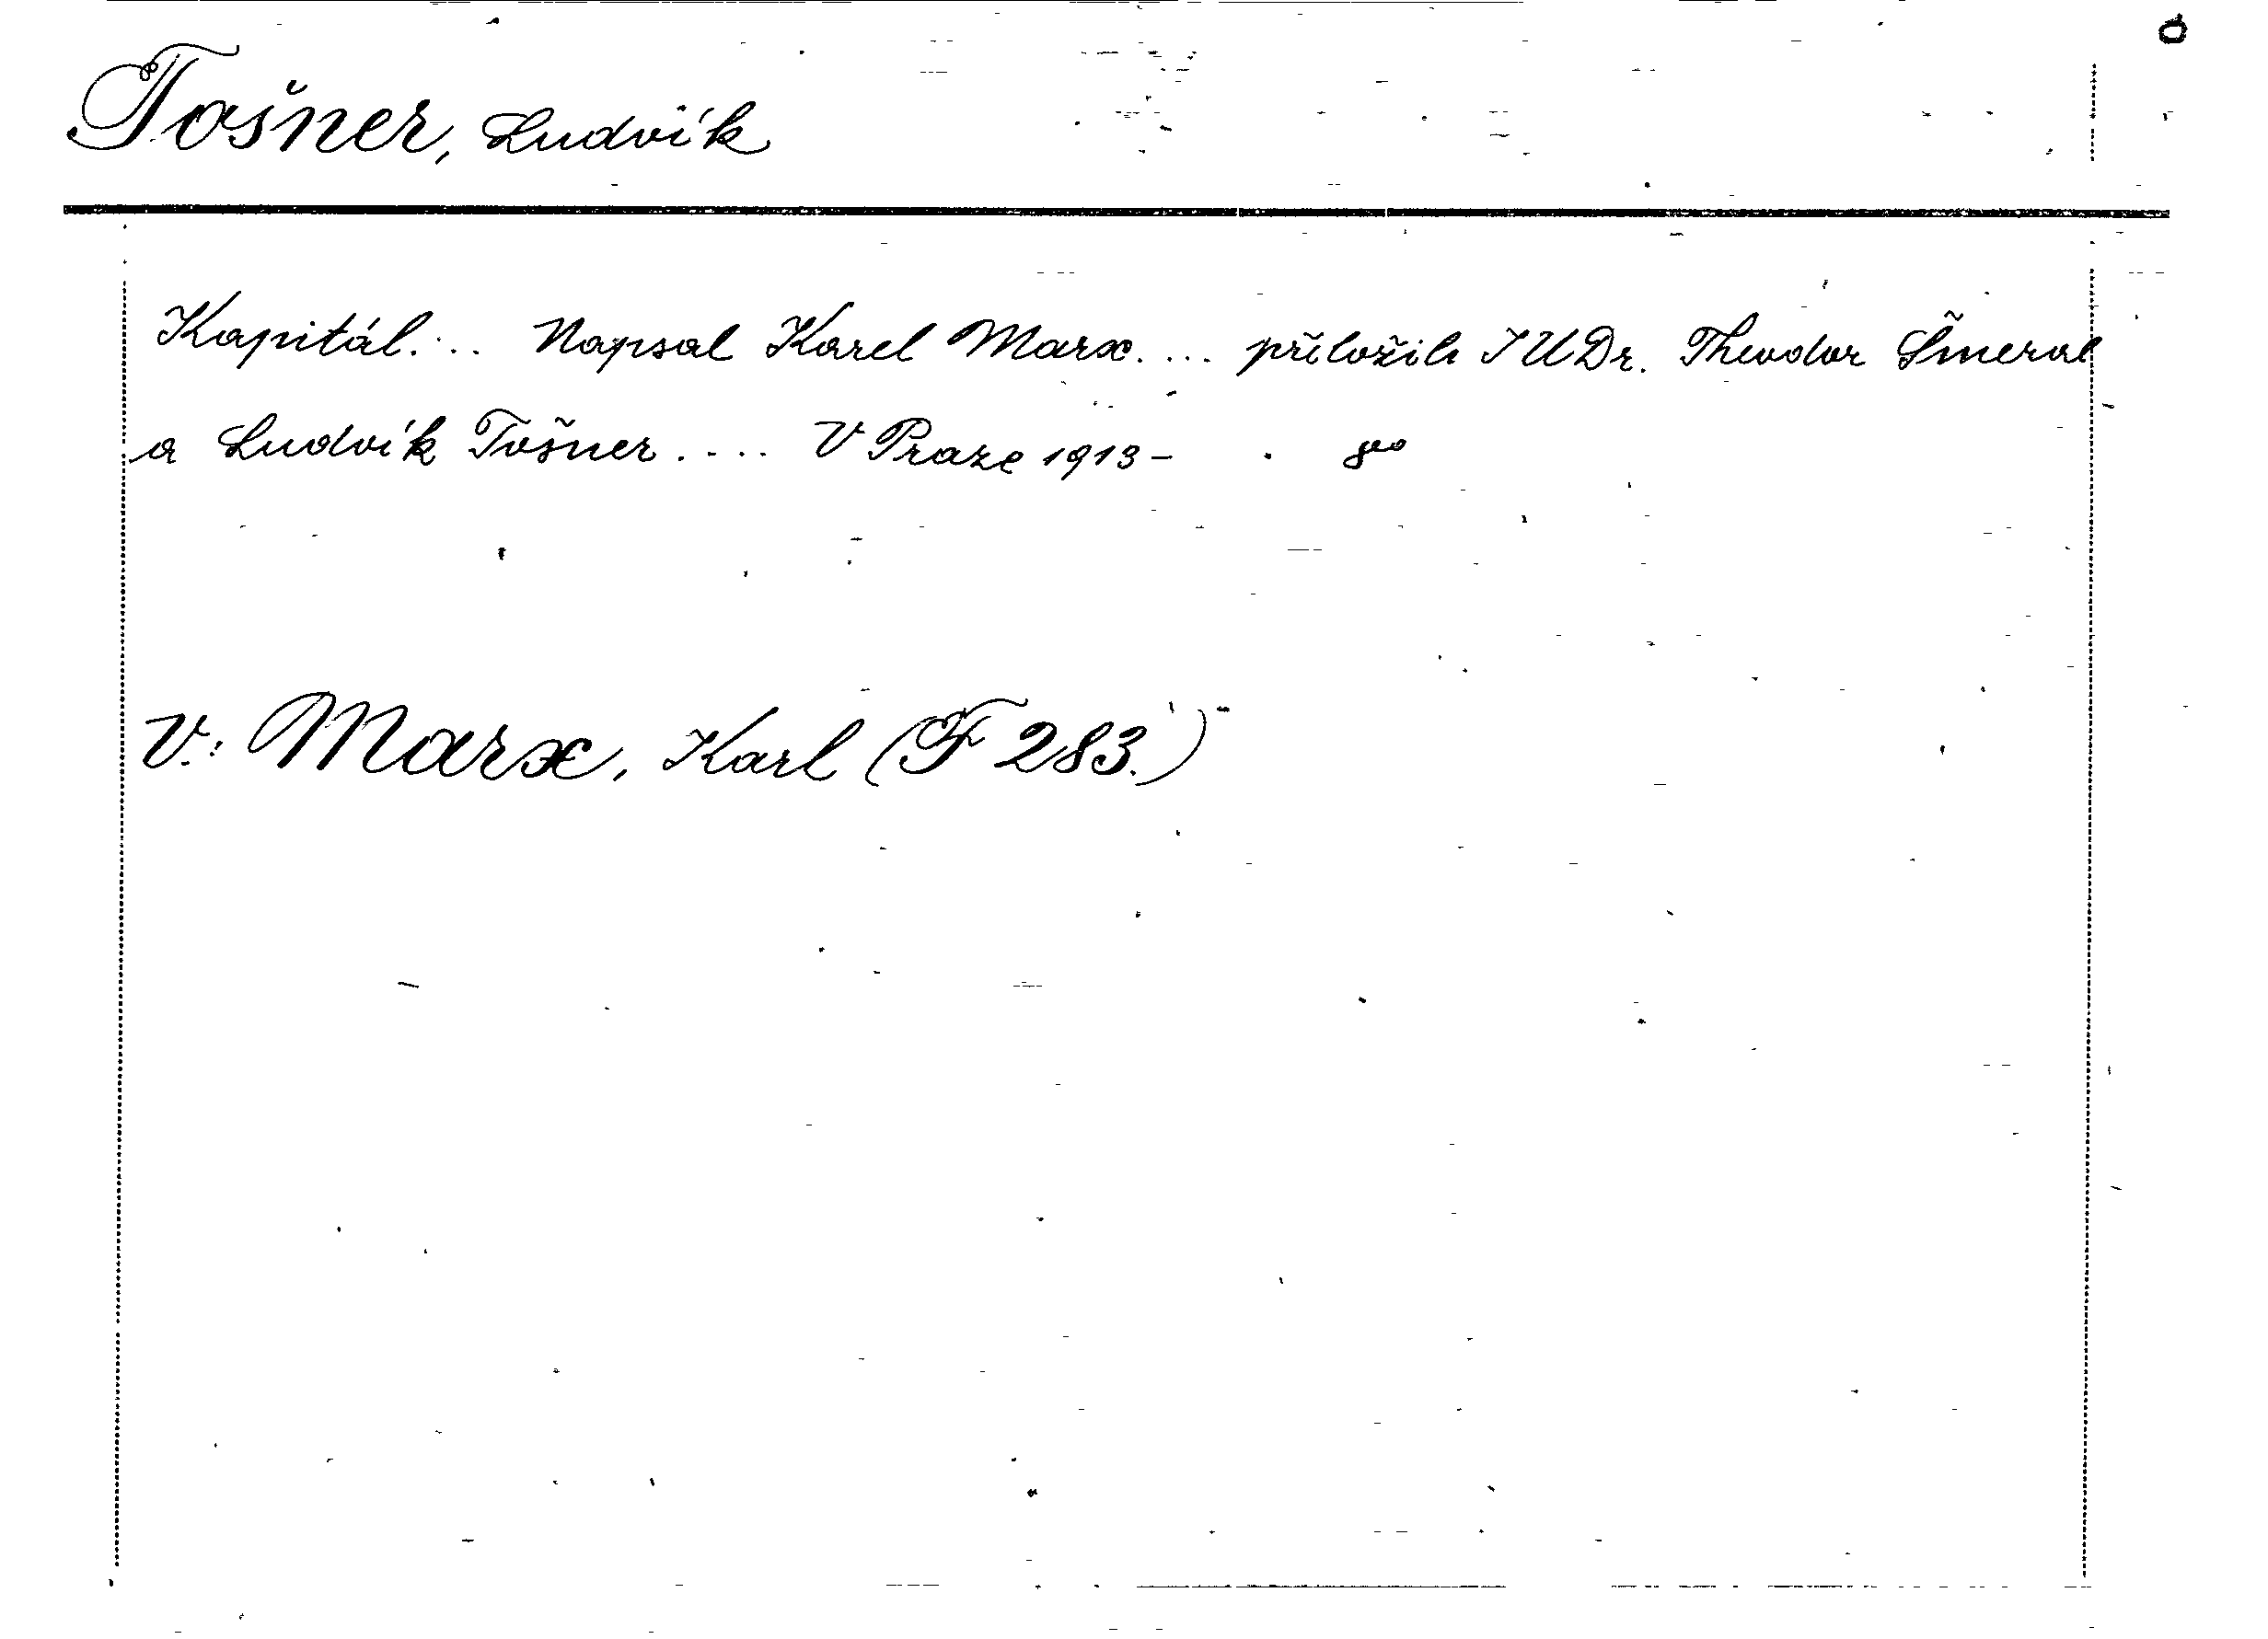 Tošner, Ludvík
Kapitál.... Napsal Karel Marx.... přeložili JUDr. Theodor Šmeral
a Ludvík Tošner.... V Praze 1913- . 8°
V.: Marx, Karl (F 283.)